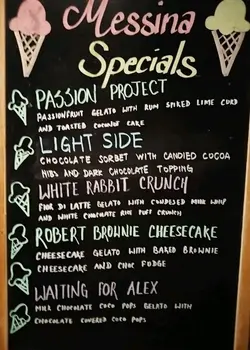 Messina
Specials
PASSION PROJECT
PASSIONFRUIT GELATO WITH RUM SPIKED LIME CURD
AND TOASTED COCONUT CAKE
LIGHT SIDE
CHOCOLATE SORBET WITH CANDIED COCOA
NIBS AND DARK CHOCOLATE TOPPING
WHITE RABBIT CRUNCH
FIOR DI LATTE GELATO WITH CONDENSED MILK WHIP
AND WHITE CHOCOLATE RICE PUFF CRUNCH
ROBERT BROWNIE CHEESECAKE
CHEESECAKE GELATO WITH BAKED BROWNIE
CHEESECAKE AND CHOC FUDGE
WAITING FOR ALEX
MILK CHOCOLATE COCO POPS GELATO WITH
CHOCOLATE COVERED COCO POPS